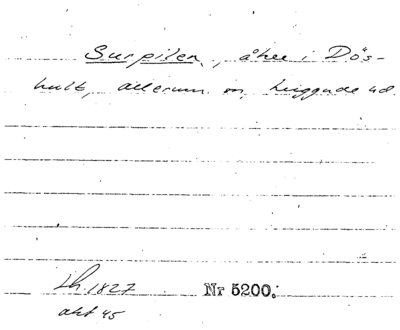 Surpilen, åker i Dös-
hult, Allerum sn, Luggude hd.
Lh. 1827 Nr 5200.
akt 45